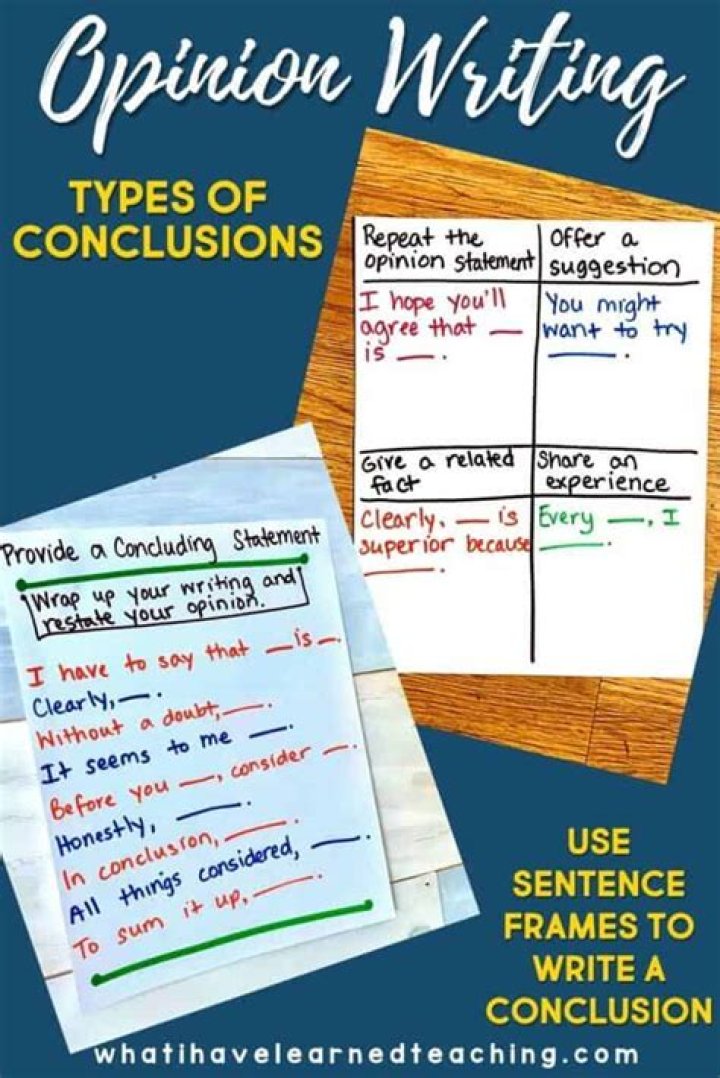 Opinion Writing
TYPES OF
CONCLUSIONS
Repeat the
opinion statement
I hope you'll
agree that __
is __.
Offer a
suggestion
You might
want to try
____.
Give a related
fact
Clearly, __ is
superior because
____.
Share an
experience
Every __, I
____.
Provide a Concluding Statement
Wrap up your writing and
restate your opinion.
I have to say that __ is __.
Clearly, __.
Without a doubt, __.
It seems to me __.
Before you __, consider __.
Honestly, __.
In conclusion, __.
All things considered, __.
To sum it up, __.
USE
SENTENCE
FRAMES TO
WRITE A
CONCLUSION
whatihavelearnedteaching.com